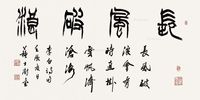 長風破浪
長風破
浪會有
時直掛
雲帆濟
滄海
李白詩句